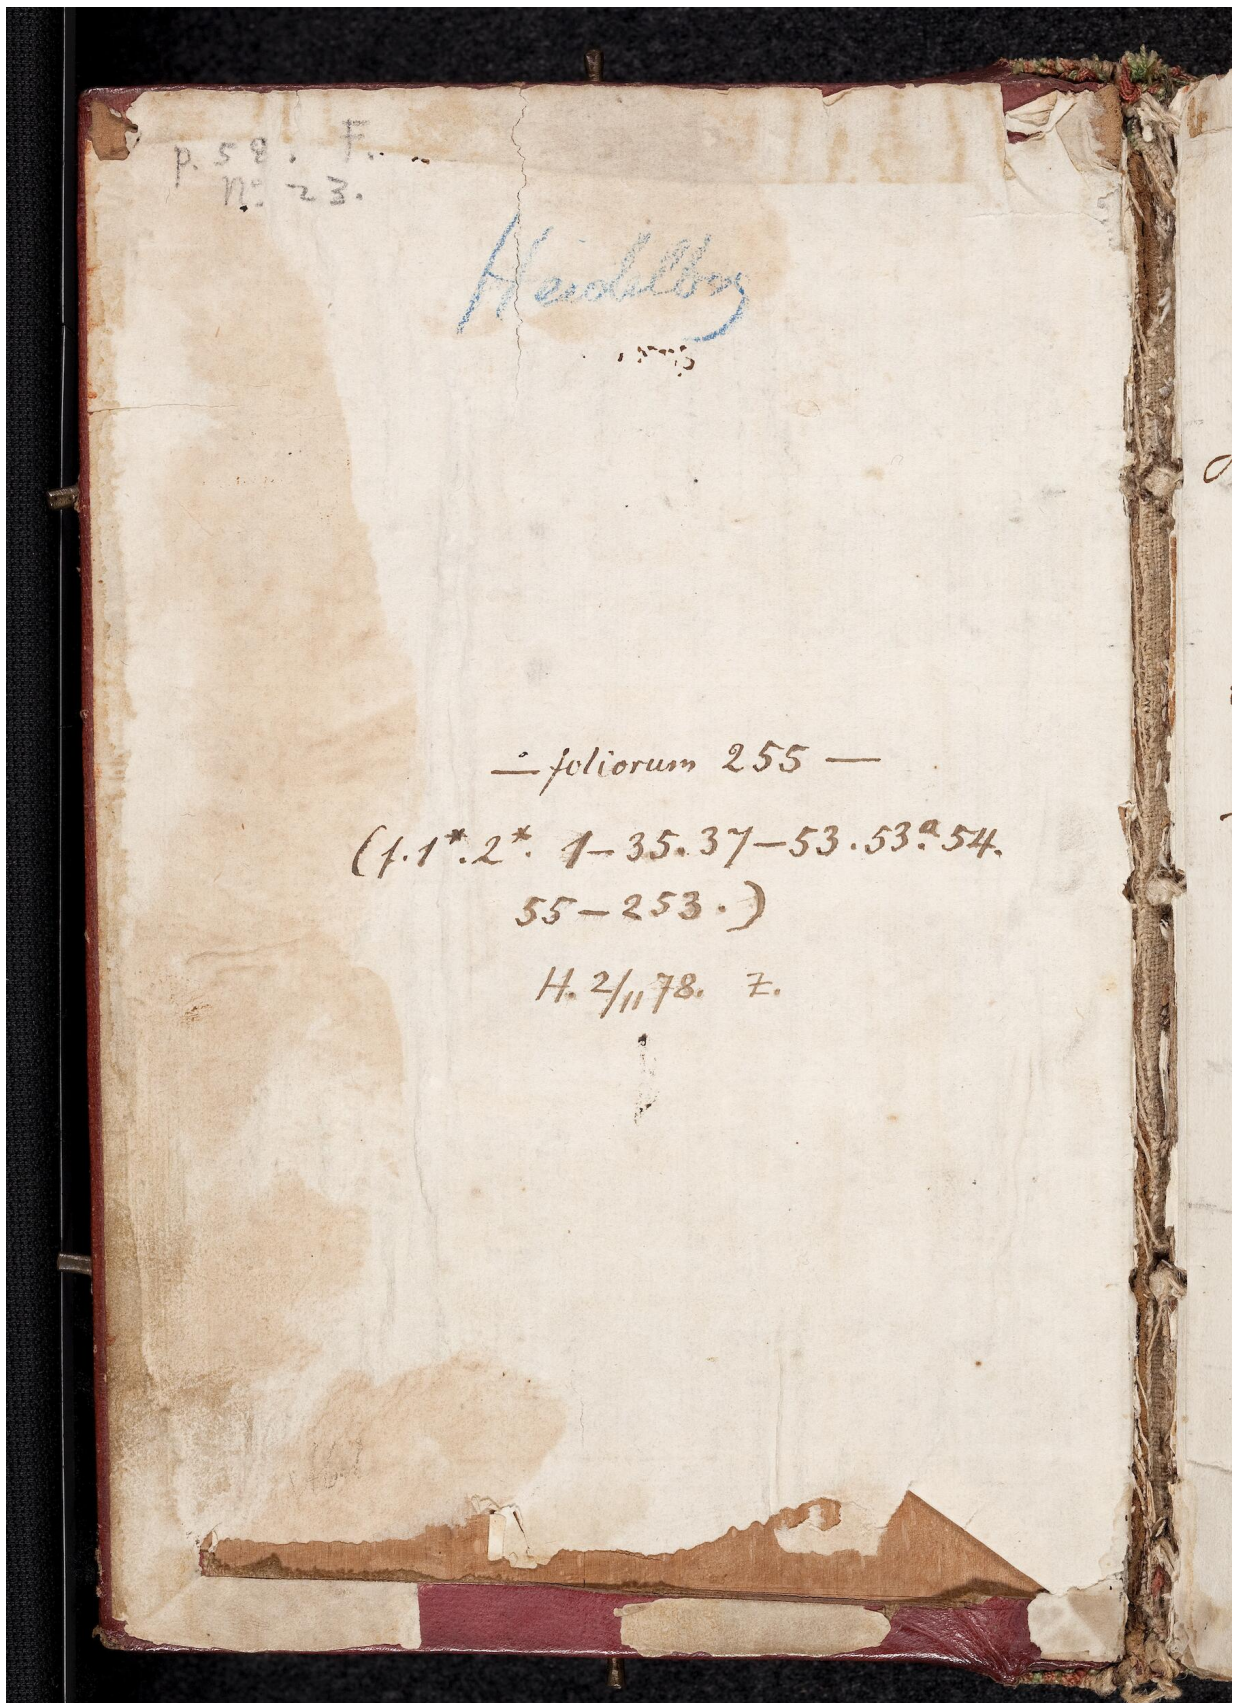 p. 58. F.
No 23.
Heidelberg
— foliorum 255 —
(f. 1*. 2*. 1—35. 37—53. 53.a 54.
55—253.)
H. 2/11 78. Z.